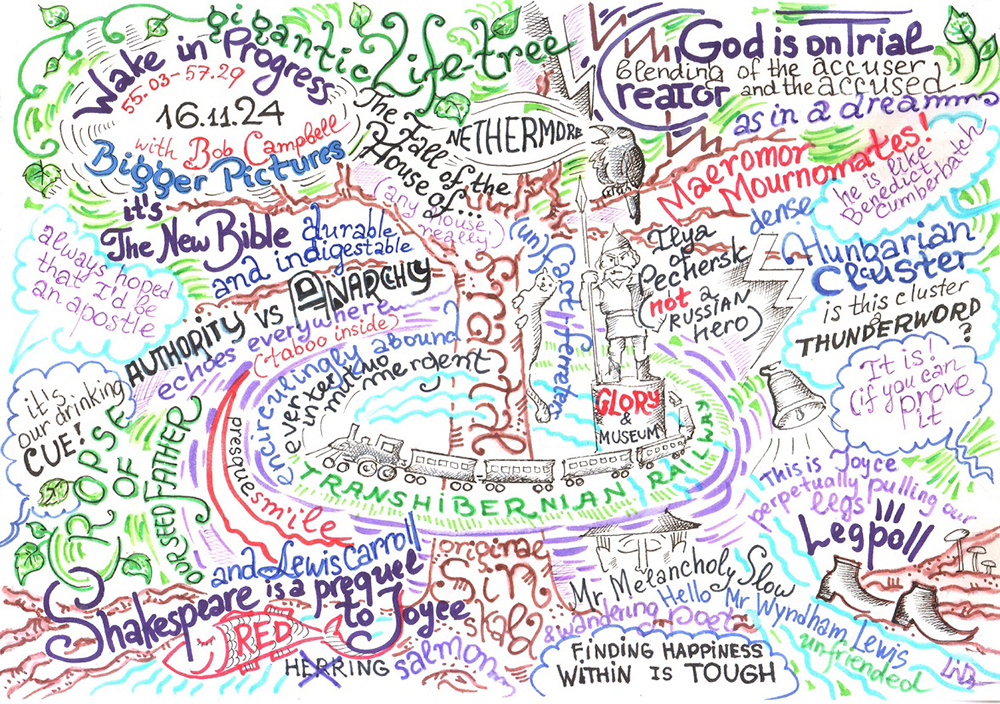 gigantic Life-tree
Wake in Progress
55.03-57.29
16.11.24
with Bob Campbell
Bigger Pictures
The Fall of the
House of...
(any house,
really)
NETHERMORE
God is on Trial
blending of the accuser
and the accused
Creator
as in a dreamms
Maeromor
Mournomates!
he is like
Benedict
Cumberbatch
dense
Hungarian
Cluster
is this cluster
a
THUNDERWORD
?
It is!
(if you can
prove
it
it's
The New Bible
durable
and indigestable
always hoped
that I'd be
an apostle
AUTHORITY vs ANARCHY
echoes everywhere
(taboo inside)
(un)
Cactiferretes
Ilya
of
Pechersk
(not a
RUSSIAN
hero)
GLORY
&
MUSEUM
it's
our drinking
CUE!
CROPSE
OF
OUR SEED FATHER
preshuesmile
encircuingly abound
ever
inter mutuo
mergent
Fractal
TRANSHIBERNIAN RAILWAY
This is Joyce
perpetually pulling our
legs
Legpoll
and Lewis Carroll
Shakespeare is a prequel
to Joyce
RED
HERRING
salmon
original
Sin
skald
Mr Melancholy Slow
& wandering poet
Hello Mr Wyndham Lewis
unfriended
FINDING HAPPINESS
WITHIN IS TOUGH